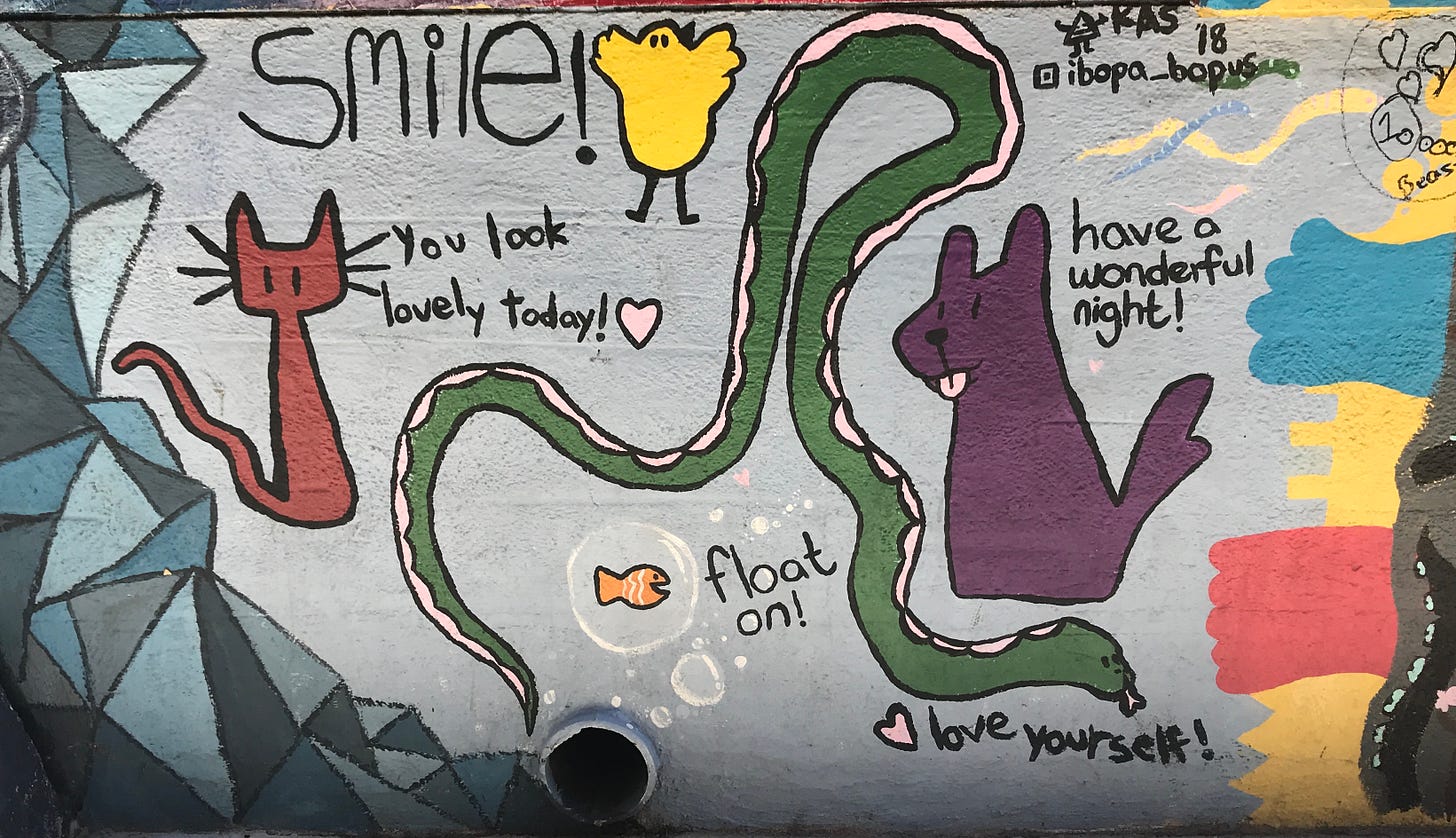 smile!
KAS
18
ibopa_bopus
you look
lovely today!
have a
wonderful
night!
float
on!
love yourself!